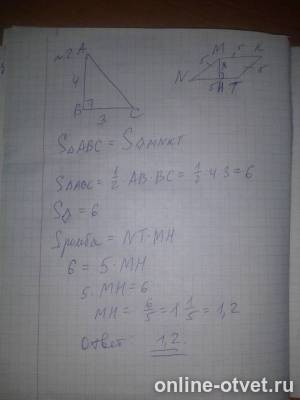 №2 A
4
B
3
C
M 5 K
5
8
5
N
5 H T
S△ABC = S◊MNKT
S△ABC = 1/2 AB·BC = 1/2·4·3 = 6
S◊ = 6
Sромба = NT·MH
6 = 5·MH
5·MH = 6
MH = 6/5 = 1 1/5 = 1,2
Ответ: 1,2.
online-otvet.ru